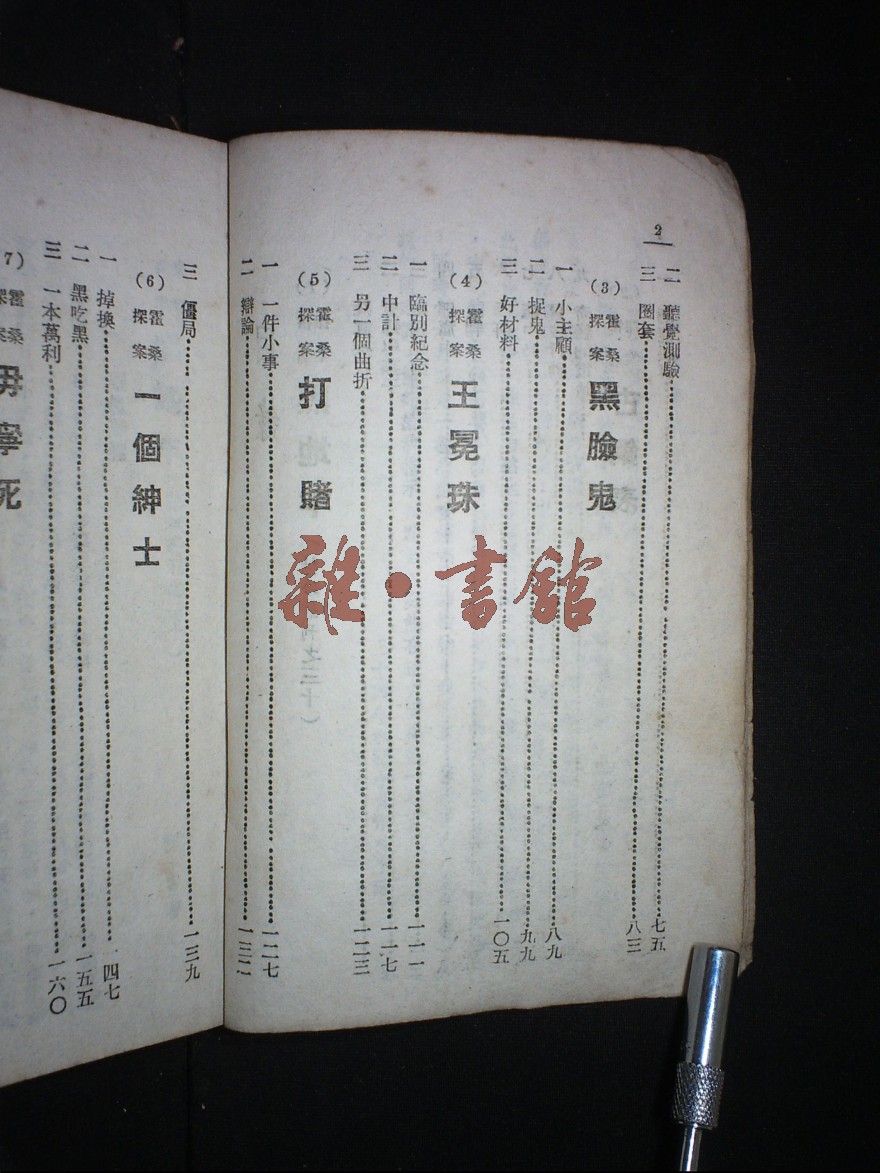 2
二 聽覺測驗……七五
三 圈套……八三
(3) 霍桑探案 黑臉鬼
一 小主顧……八九
二 捉鬼……九九
三 好材料……一〇五
(4) 霍桑探案 王冕珠
一 臨別紀念……一一一
二 中計……一一七
三 另一個曲折……一二三
(5) 霍桑探案 打賭
一 一件小事……一二七
二 辯論……一三二
三 僵局……一三九
(6) 霍桑探案 一個紳士
一 掉換……一四七
二 黑吃黑……一五五
三 一本萬利……一六〇
7) 霍桑探案 毋寧死
雜·書館